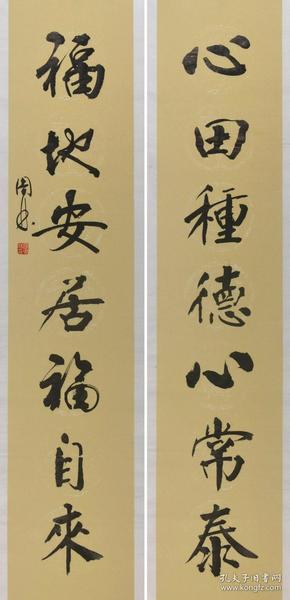 心田種德心常泰
福地安居福自來
孔夫子旧书网